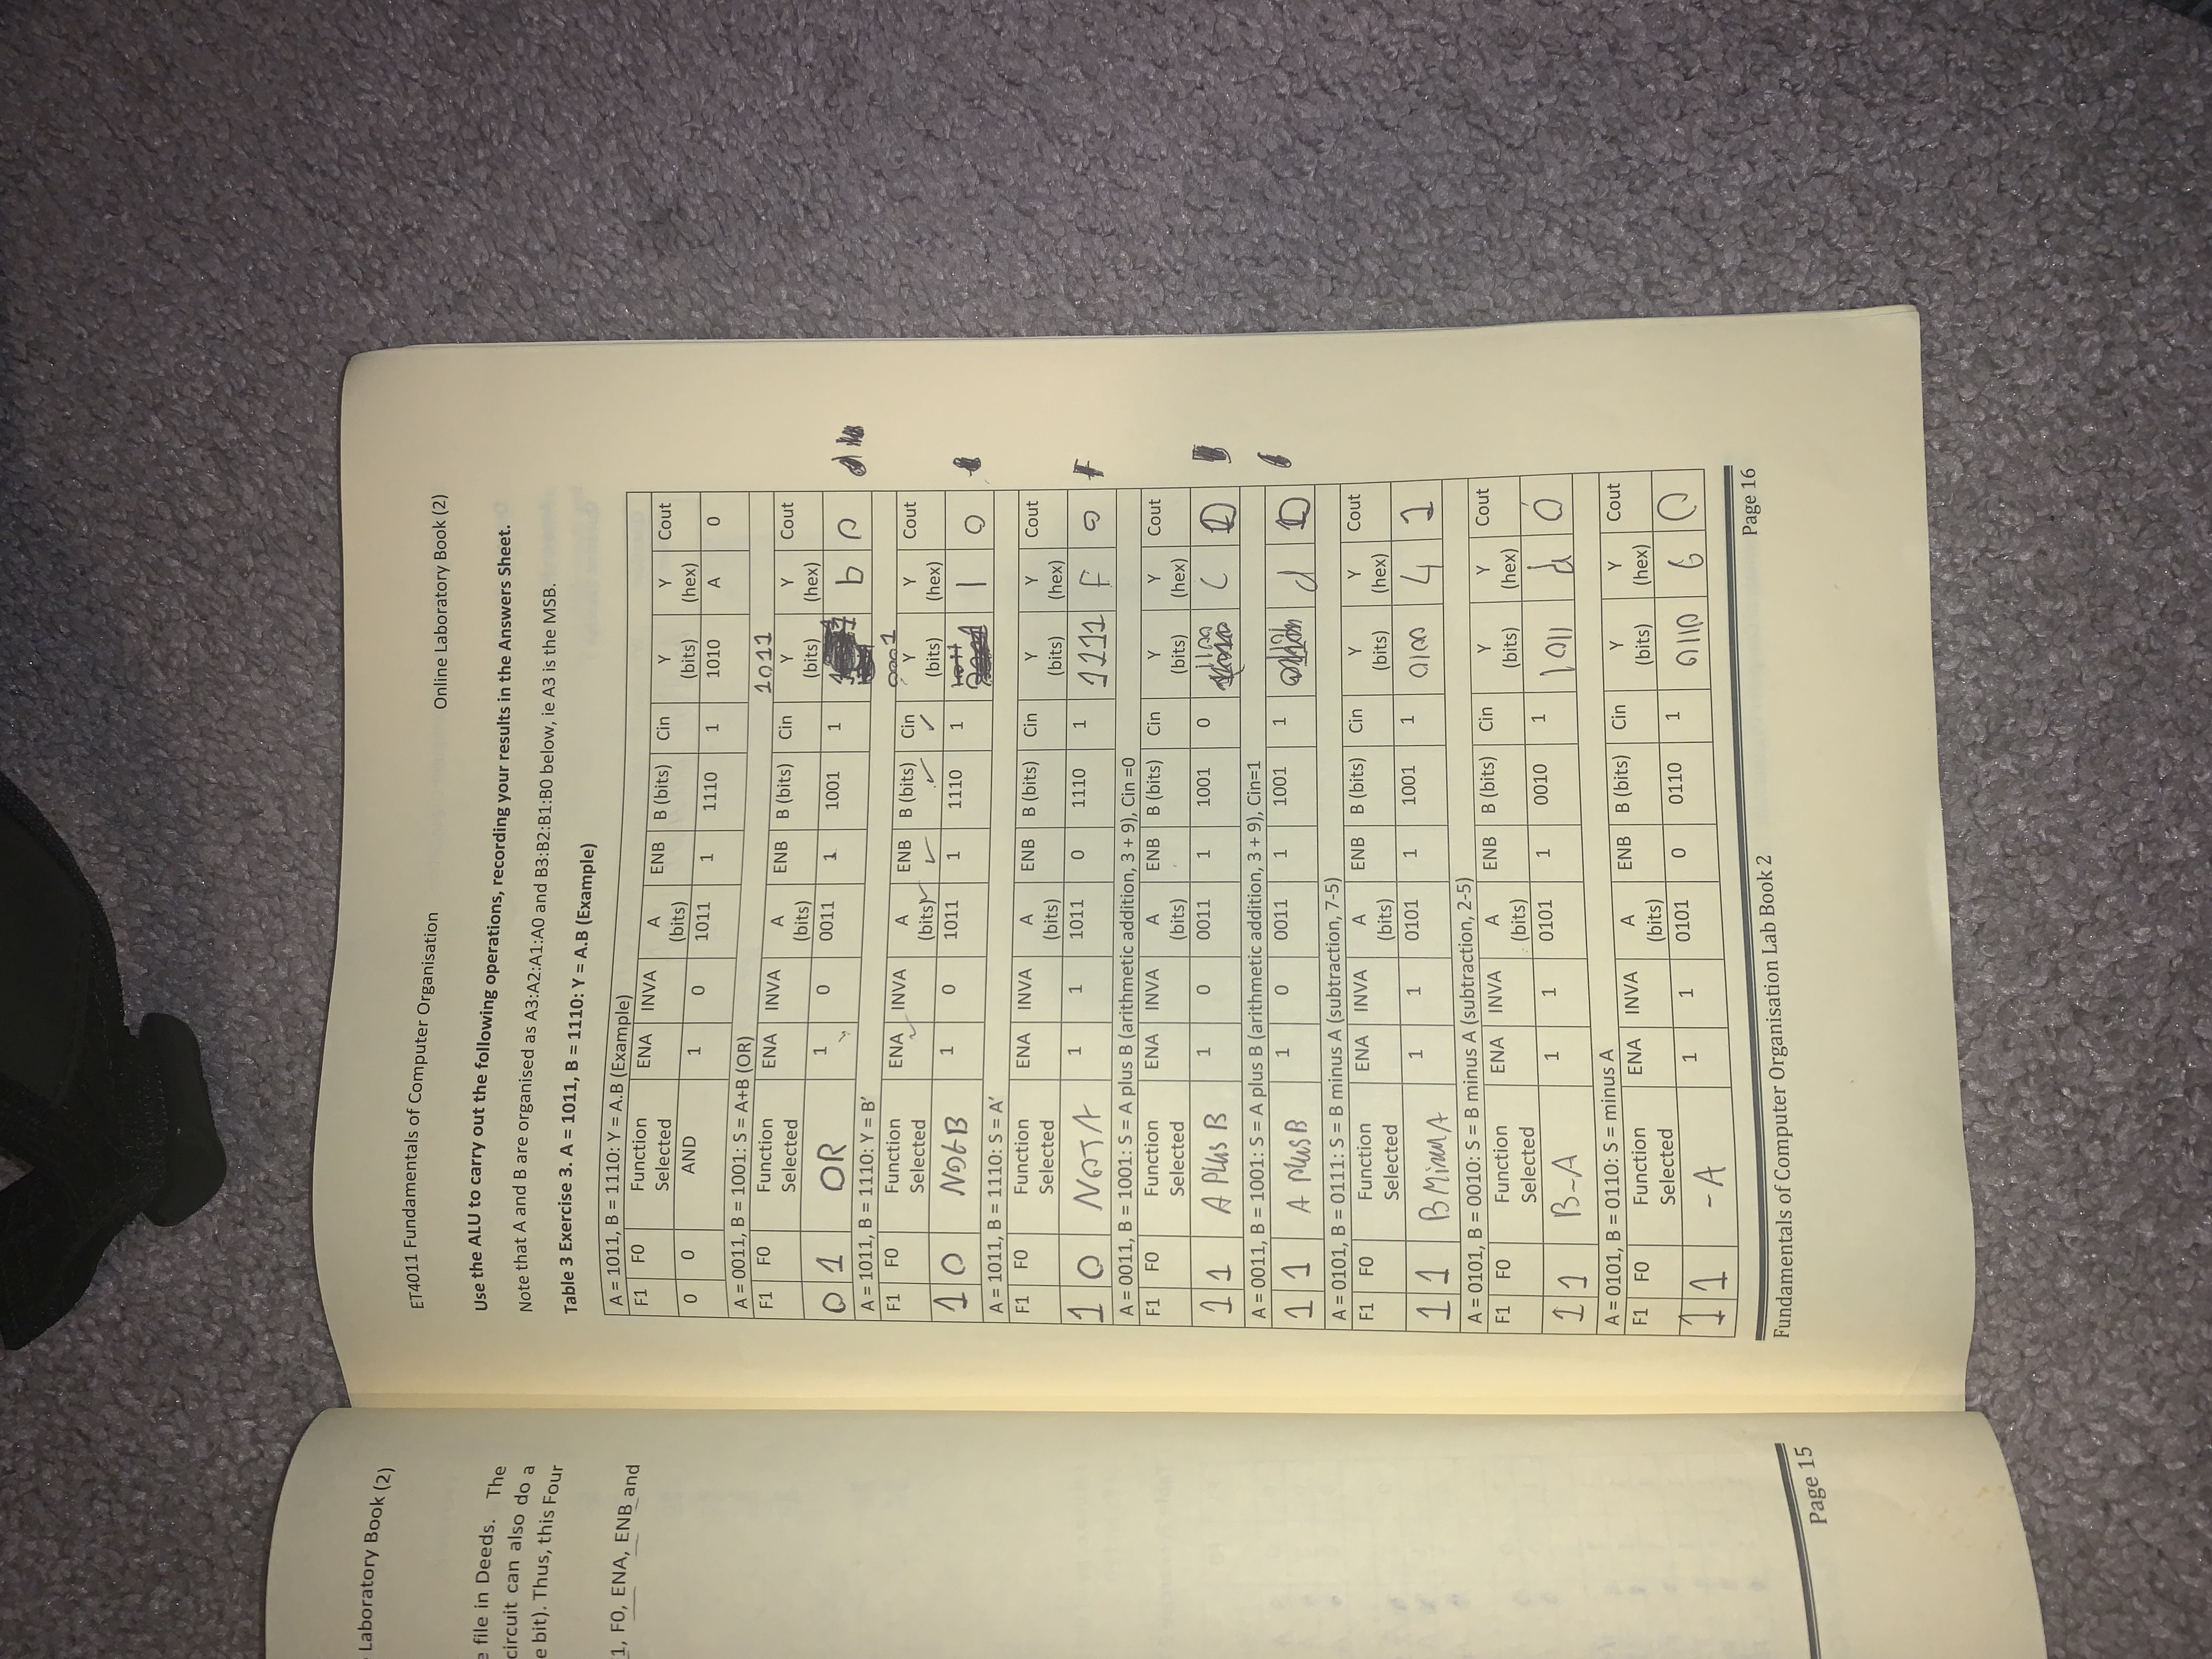 Laboratory Book (2)
e file in Deeds. The
circuit can also do a
e bit). Thus, this Four
1, F0, ENA, ENB and
Page 15
ET4011 Fundamentals of Computer Organisation
Online Laboratory Book (2)
Use the ALU to carry out the following operations, recording your results in the Answers Sheet.
Note that A and B are organised as A3:A2:A1:A0 and B3:B2:B1:B0 below, ie A3 is the MSB.
Table 3 Exercise 3. A = 1011, B = 1110: Y = A.B (Example)
A = 1011, B = 1110: Y = A.B (Example)
F1 F0 Function Selected ENA INVA A (bits) ENB B (bits) Cin Y (bits) Y (hex) Cout
0 0 AND 1 0 1011 1 1110 1 1010 A 0
A = 0011, B = 1001: S = A+B (OR)
1011
F1 F0 Function Selected ENA INVA A (bits) ENB B (bits) Cin Y (bits) Y (hex) Cout
0 1 OR 1 0 0011 1 1001 1 b 0
A = 1011, B = 1110: Y = B'
0001
F1 F0 Function Selected ENA INVA A (bits) ENB B (bits) Cin Y (bits) Y (hex) Cout
1 0 NOtB 1 0 1011 1 1110 1 1 0
A = 1011, B = 1110: S = A'
F1 F0 Function Selected ENA INVA A (bits) ENB B (bits) Cin Y (bits) Y (hex) Cout
1 0 NOTA 1 1 1011 0 1110 1 1111 F 0
A = 0011, B = 1001: S = A plus B (arithmetic addition, 3 + 9), Cin =0
F1 F0 Function Selected ENA INVA A (bits) ENB B (bits) Cin Y (bits) Y (hex) Cout
1 1 A PLUS B 1 0 0011 1 1001 0 1100 C
A = 0011, B = 1001: S = A plus B (arithmetic addition, 3 + 9), Cin=1
1 1 A PLUS B 1 0 0011 1 1001 1 d
A = 0101, B = 0111: S = B minus A (subtraction, 7-5)
F1 F0 Function Selected ENA INVA A (bits) ENB B (bits) Cin Y (bits) Y (hex) Cout
1 1 B Minus A 1 1 0101 1 1001 1 0100 4 1
A = 0101, B = 0010: S = B minus A (subtraction, 2-5)
F1 F0 Function Selected ENA INVA A (bits) ENB B (bits) Cin Y (bits) Y (hex) Cout
1 1 B-A 1 1 0101 1 0010 1 1011 d 0
A = 0101, B = 0110: S = minus A
F1 F0 Function Selected ENA INVA A (bits) ENB B (bits) Cin Y (bits) Y (hex) Cout
1 1 -A 1 1 0101 0 0110 1 0110 6 0
Fundamentals of Computer Organisation Lab Book 2
Page 16